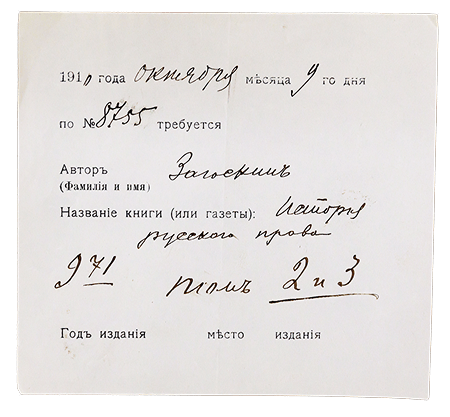 1910 года октября мѣсяца 9 го дня
по № 8755 требуется
Авторъ Загоскинъ
(Фамилія и имя)
Названіе книги (или газеты): Исторія
русскаго права
971 томъ 2 и 3
Годъ изданія мѣсто изданія